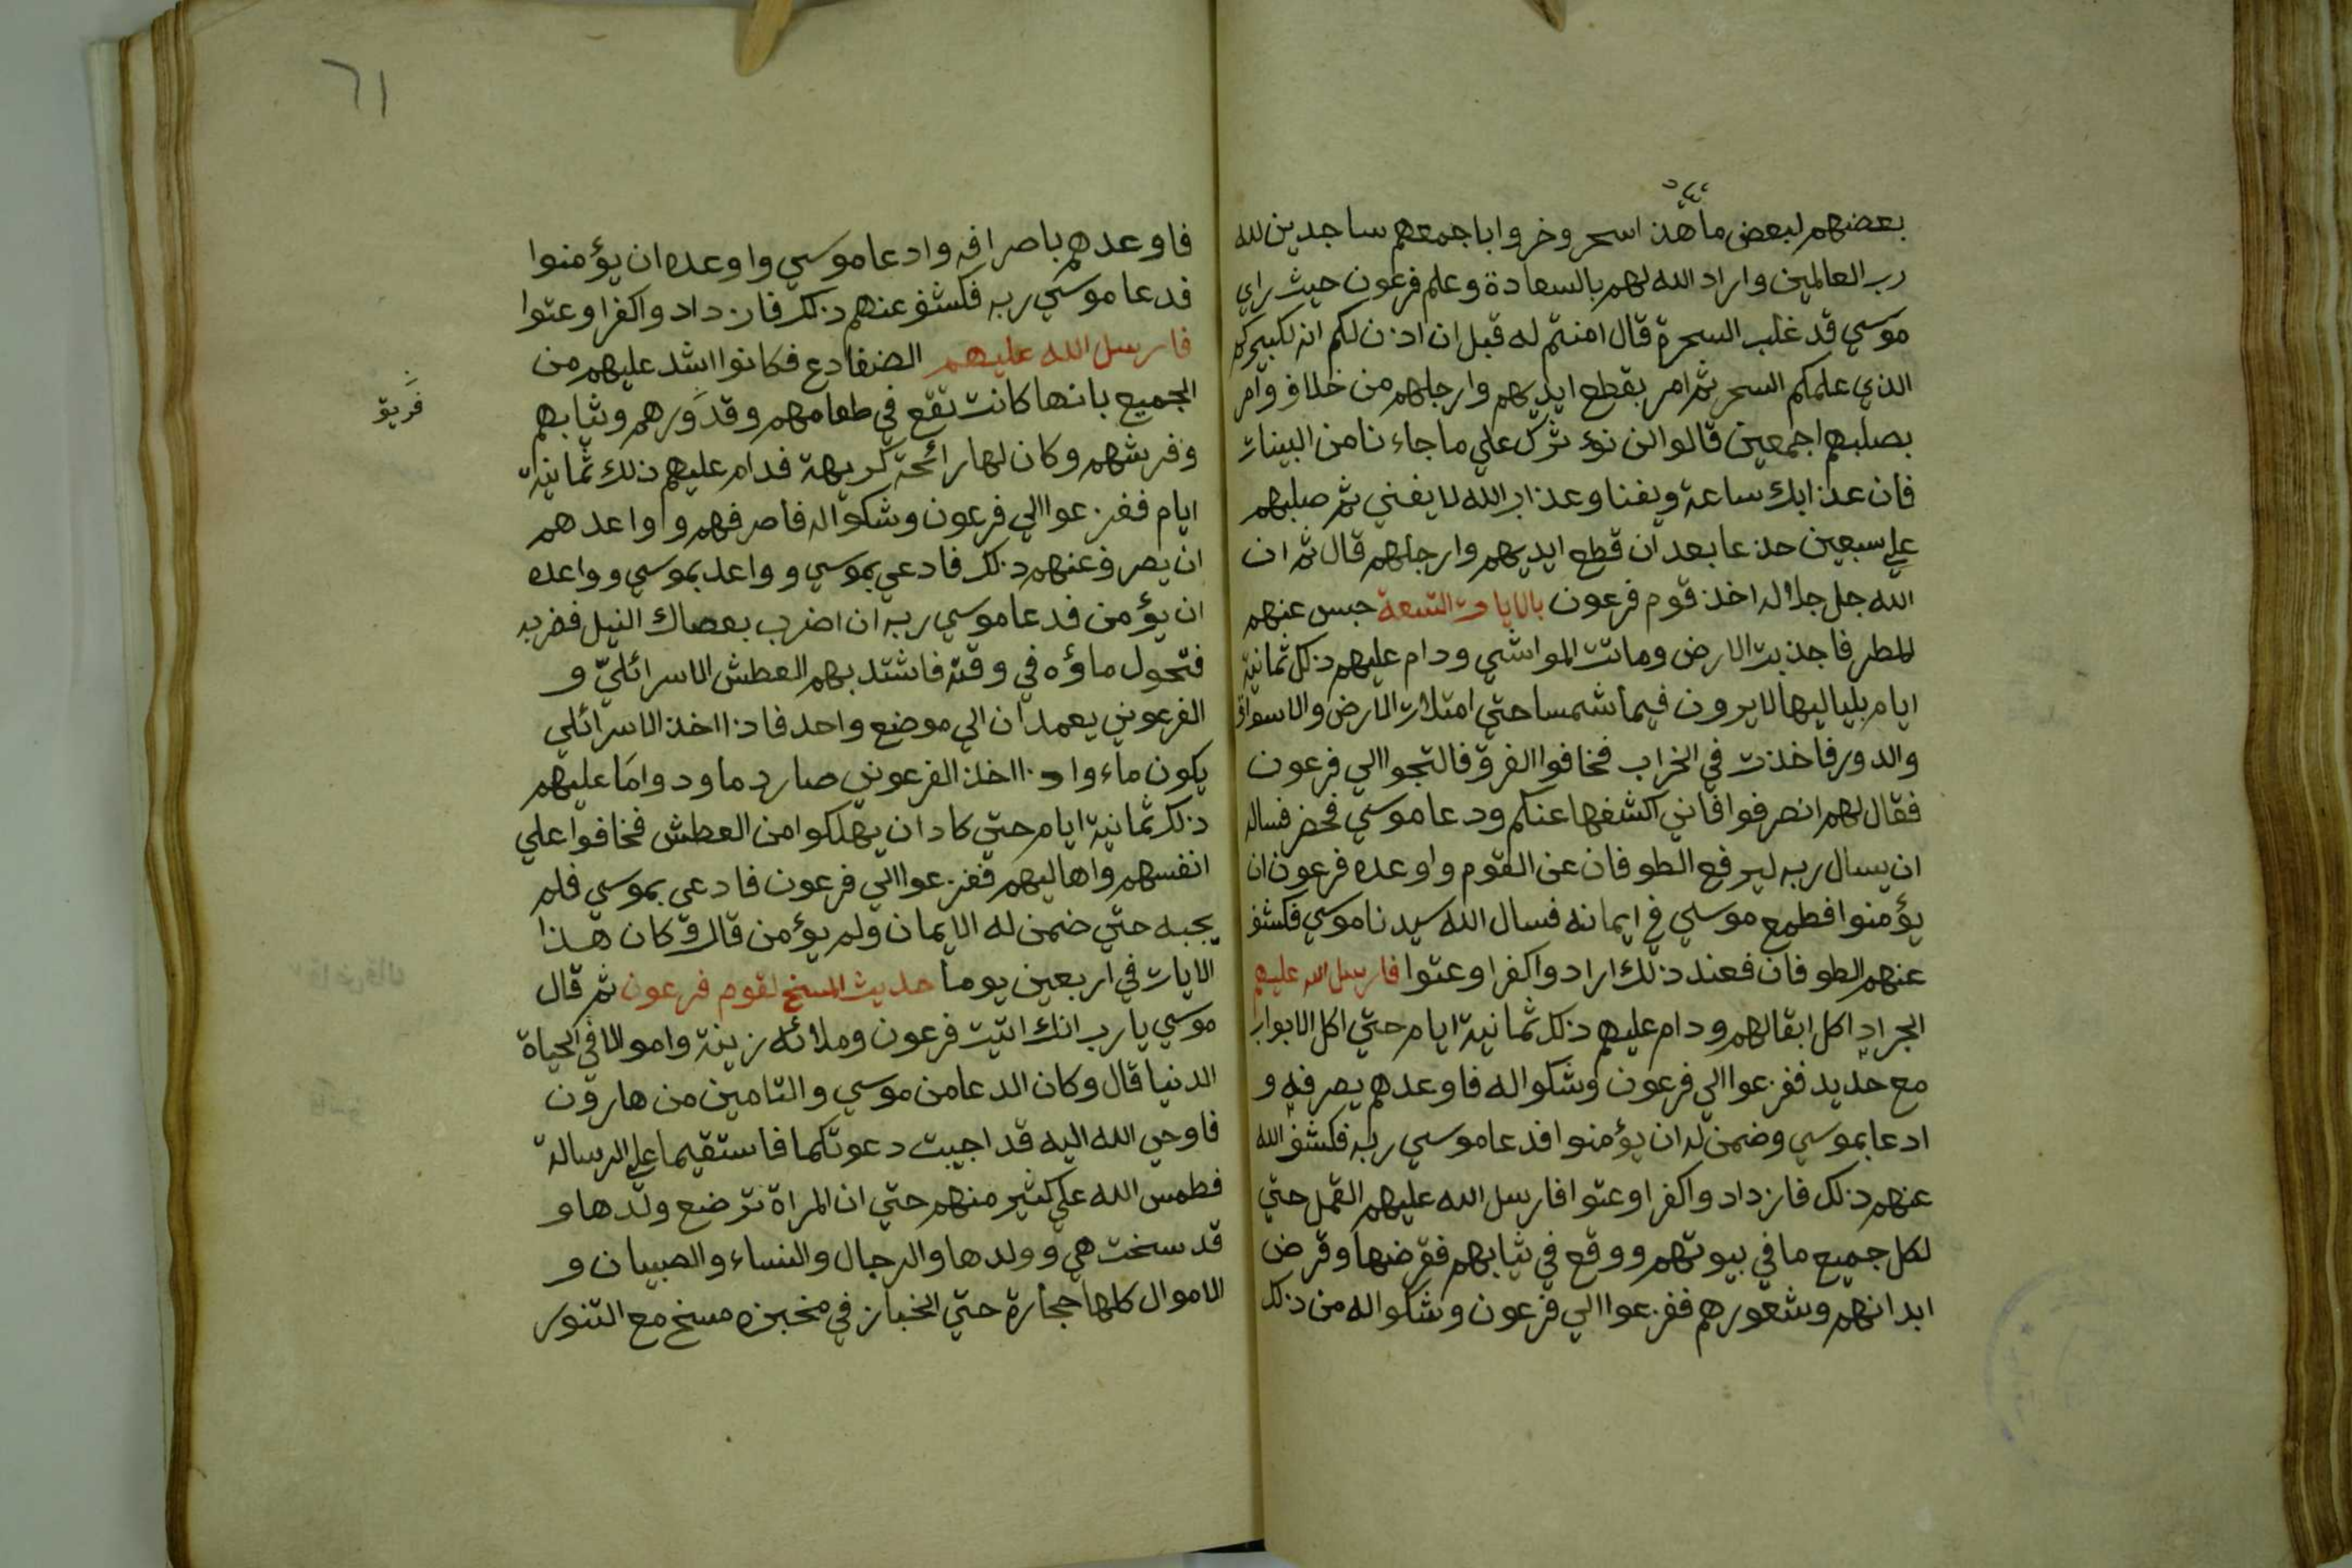 بعضهم لبعض ما هذا سحر وخروا باجمعهم ساجدين لله
رب العالمين واراد الله لهم بالسعادة وعلم فرعون حيث راي
موسي قد غلب السحرة قال امنتم له قبل ان اذن لكم انه لكبيركم
الذي علمكم السحر ثم امر بقطع ايديهم وارجلهم من خلاف وامر
بصلبهم اجمعين قالوا لن نؤثرك علي ما جاءنا من البينات
فان عذابك ساعة ويفنا وعذاب الله لا يفني ثم صلبهم
علي سبعين جذعا بعد ان قطع ايديهم وارجلهم قال ثم ان
الله جل جلاله اخذ قوم فرعون بالايات التسعة حبس عنهم
المطر فاجذبت الارض وماتت المواشي ودام عليهم ذلك ثمانية
ايام بلياليها لا يرون فيها شمسا حتي امتلات الارض والاسواق
والدور فاخذت في الخراب فخافوا الغرق فالتجوا الي فرعون
فقال لهم انصرفوا فاني اكشفها عنكم ودعا موسي فحضر فساله
ان يسال ربه ليرفع الطوفان عن القوم واوعده فرعون ان
يؤمنوا فطمع موسي في ايمانه فسال الله سيدنا موسي فكشف
عنهم الطوفان فعند ذلك ازدادوا كفرا وعتوا فارسل الله عليهم
الجراد اكل ابقالهم ودام عليهم ذلك ثمانية ايام حتي اكل الابواب
مع حديد ففزعوا الي فرعون وشكوا له فاوعدهم يصرفه و
ادعا بموسي وضمن له ان يؤمنوا فدعا موسي ربه فكشف الله
عنهم ذلك فازدادوا كفرا وعتوا فارسل الله عليهم القمل حتي
لكل جميع ما في بيوتهم ووقع في ثيابهم فقرضها وقرض
ابدانهم وشعورهم ففزعوا الي فرعون وشكوا له من ذلك
٦١
فاوعدهم باصرافه وادعا موسي واوعده ان يؤمنوا
فدعا موسي ربه فكشف عنهم ذلك فازدادوا كفرا وعتوا
فارسل الله عليهم الضفادع فكانوا اشد عليهم من
الجميع بانها كانت تقع في طعامهم وقدورهم وثيابهم
وفرشهم وكان لها رائحة كريهة فدام عليهم ذلك ثمانية
ايام ففزعوا الي فرعون وشكوا له فاصرفهم وواعدهم
ان يصرف عنهم ذلك فادعي بموسي وواعد بموسي وواعده
ان يؤمن فدعا موسي ربه ان اضرب بعصاك النيل فضربه
فتحول ماؤه في وقته فاشتد بهم العطش الاسرائلي و
الفرعوني يعمدان الي موضع واحد فاذا اخذ الاسرائلي
يكون ماء واذا اخذ الفرعوني صار دما ودواما عليهم
ذلك ثمانية ايام حتي كاد ان يهلكوا من العطش فخافوا علي
انفسهم واهاليهم ففزعوا الي فرعون فادعي بموسي فلم
يجبه حتي ضمن له الايمان ولم يؤمن قال وكان هذا
الايات في اربعين يوما حديث المسخ لقوم فرعون ثم قال
موسي يا رب انك اتيت فرعون وملائه زينة واموالا في الحياة
الدنيا قال وكان الدعا من موسي والتامين من هارون
فاوحي الله اليه قد اجيبت دعوتكما فاستقيما علي الرسالة
فطمس الله علي كثير منهم حتي ان المراة ترضع ولدها و
قد سخت هي وولدها والرجال والنساء والصبيان و
الاموال كلها حجارة حتي الخباز في مخبزه مسخ مع التنور